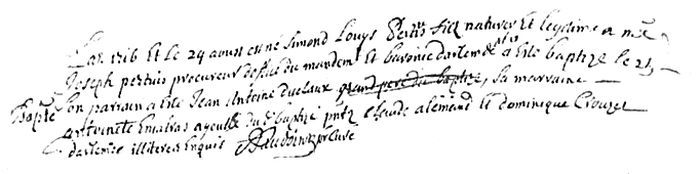 L'an 1716 et le 24 aoust est né Simond Louys Pertus filz naturel et legitime a me
Joseph pertuis procureur du mandemt et baronie d'arlemde a esté baptize le 25
Bapte son parrain a esté Jean Antoine Duclaux grand pere du baptize, sa marraine
antoinete Emalras ayeulle du baptizé pntz claude alemand et dominique Crouzet
darlemde illiteres enquis